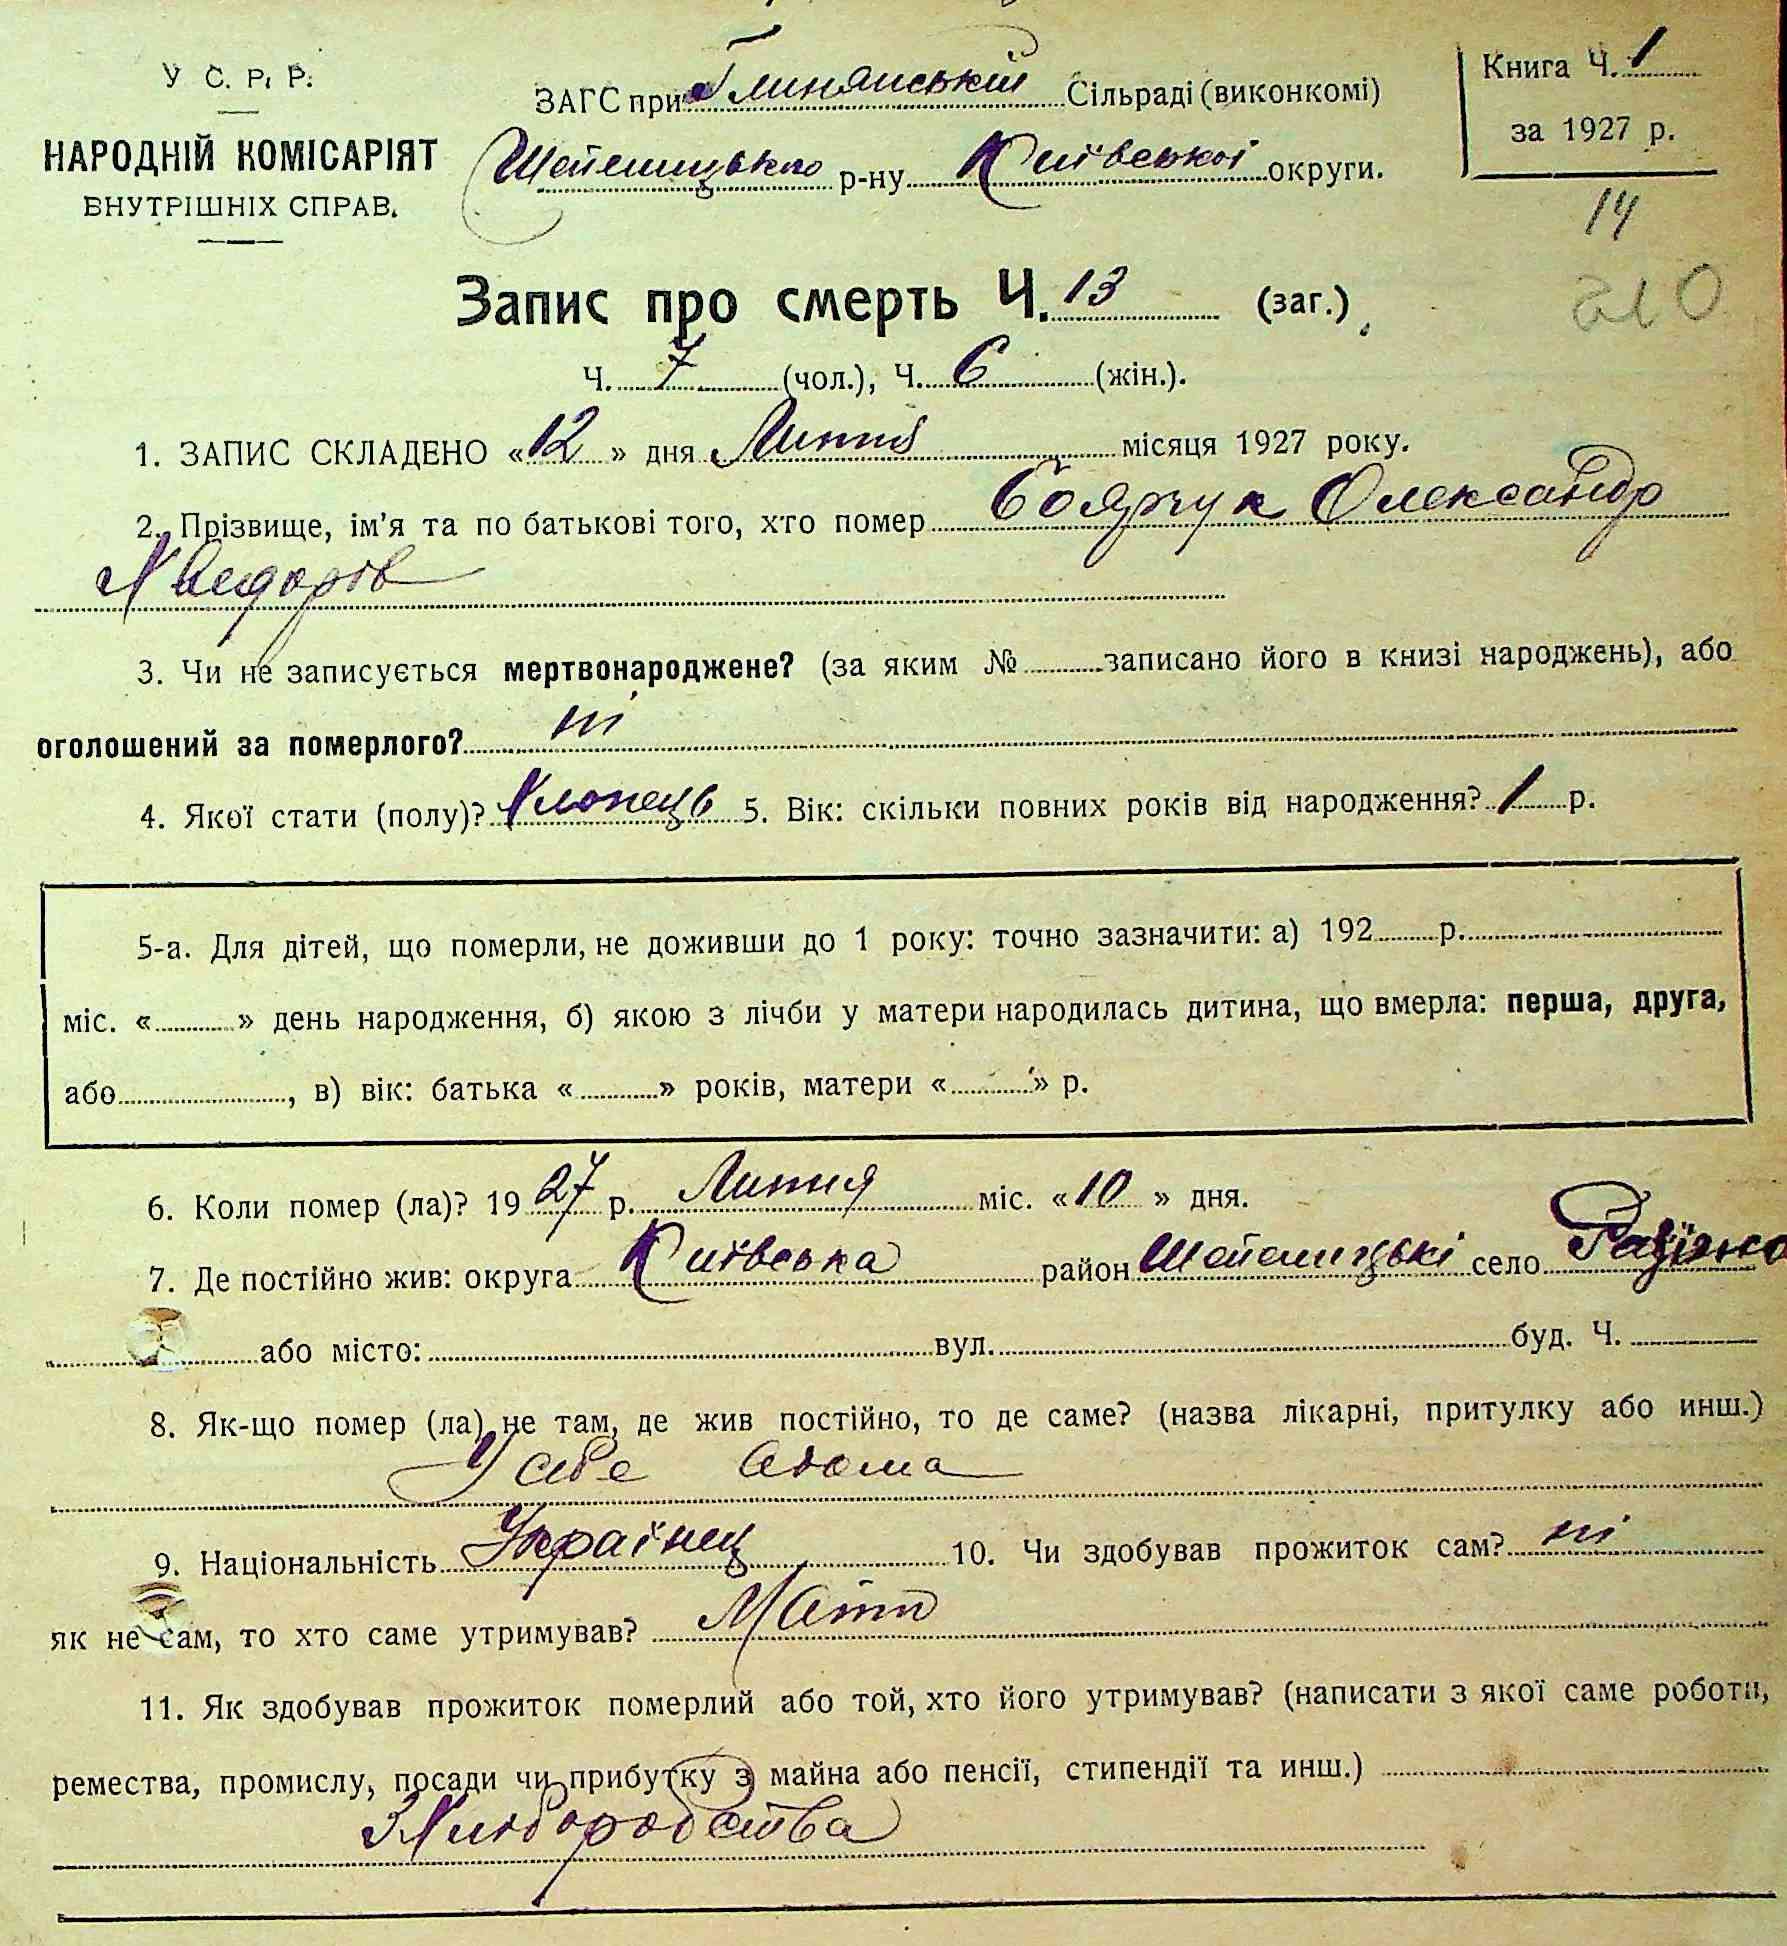 У С. Р. Р.
НАРОДНІЙ КОМІСАРІЯТ
ВНУТРІШНІХ СПРАВ.
ЗАГС при Глинянській Сільраді (виконкомі)
Шепелицького р-ну Київської округи.
Книга Ч. 1
за 1927 р.
14
210
Запис про смерть Ч. 13 (заг.)
Ч. 7 (чол.), Ч. 6 (жін.).
1. ЗАПИС СКЛАДЕНО «12» дня Липня місяця 1927 року.
2. Прізвище, ім'я та по батькові того, хто помер Боярчук Олександр
Хведорів
3. Чи не записується мертвонароджене? (за яким № записано його в книзі народжень), або
оголошений за померлого? ні
4. Якої стати (полу)? Хлопець 5. Вік: скільки повних років від народження? 1 р.
5-а. Для дітей, що померли, не доживши до 1 року: точно зазначити: а) 192 р.
міс. « » день народження, б) якою з лічби у матери народилась дитина, що вмерла: перша, друга,
або , в) вік: батька « » років, матери « » р.
6. Коли помер (ла)? 1927 р. Липня міс. «10» дня.
7. Де постійно жив: округа Київська район Шепелицькі село
або місто: вул. буд. Ч.
8. Як-що помер (ла) не там, де жив постійно, то де саме? (назва лікарні, притулку або инш.)
У себе
9. Національність Українец 10. Чи здобував прожиток сам? ні
як не сам, то хто саме утримував? Мати
11. Як здобував прожиток померлий або той, хто його утримував? (написати з якої саме роботи,
ремества, промислу, посади чи прибутку з майна або пенсії, стипендії та инш.)
З Хліборобства